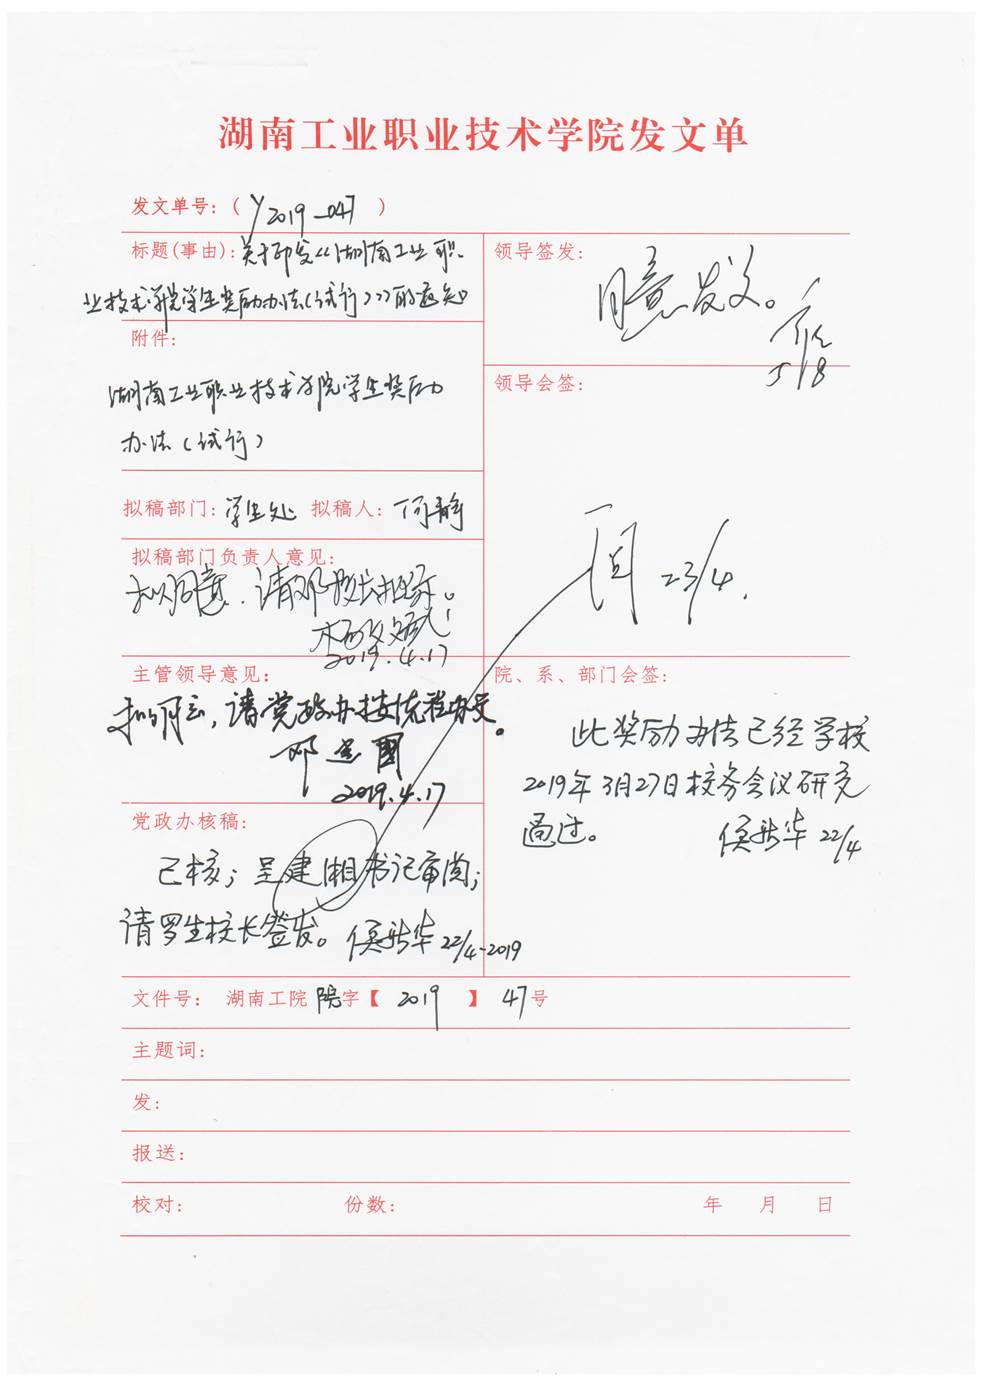 湖南工业职业技术学院发文单
发文单号：( Y2019-047 )
标题(事由)：关于印发《湖南工业职
业技术学院学生奖励办法(试行)》的通知
领导签发：
同意发文。
5/8
附件：
湖南工业职业技术学院学生奖励
办法(试行)
领导会签：
23/4.
拟稿部门：学生处 拟稿人：何静
拟稿部门负责人意见：
拟同意.请邓校长批示。
2019.4.17
主管领导意见：
拟同意，请党政办按流程办文。
邓 国
2019.4.17
院、系、部门会签：
此奖励办法已经学校
2019年3月27日校务会议研究
通过。 侯新华 22/4
党政办核稿：
已核；呈建湘书记审阅；
请罗生校长签发。侯新华 22/4-2019
文件号： 湖南工院 院字【 2019 】 47号
主题词：
发：
报送：
校对： 份数： 年 月 日